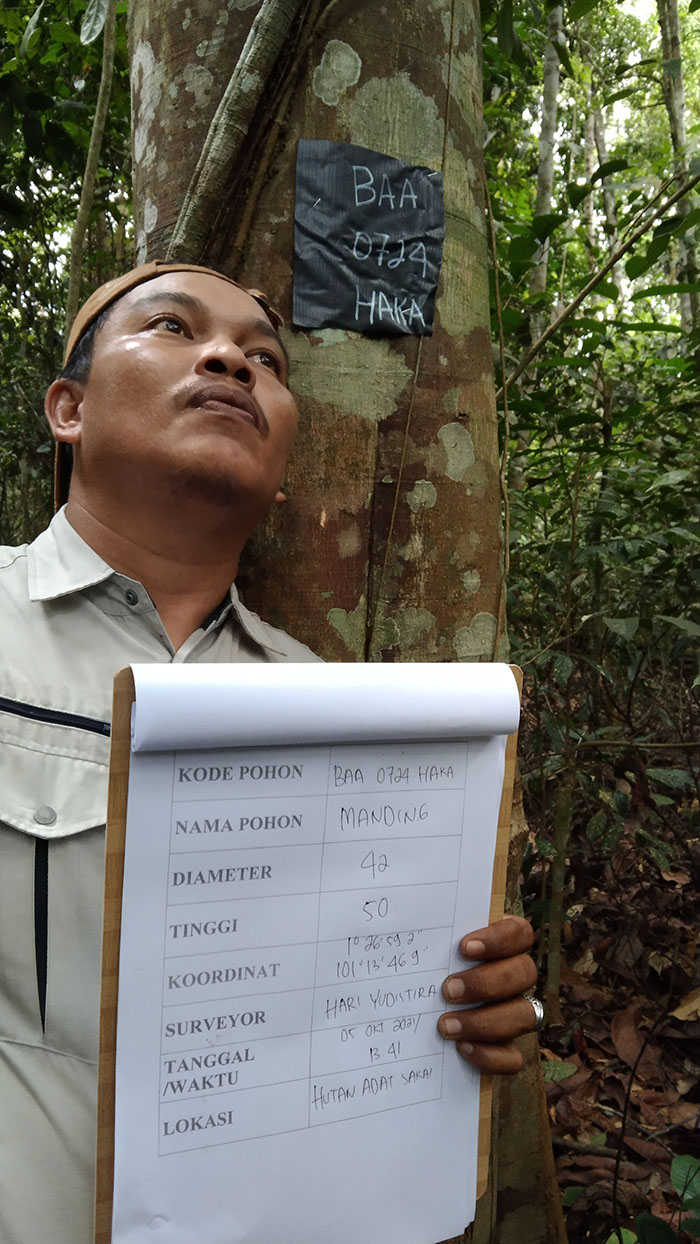 BAA
0724
HAKA
KODE POHON BAA 0724 HAKA
NAMA POHON MANDING
DIAMETER 42
TINGGI 50
KOORDINAT 1° 26' 59 2"
101° 13' 46 9"
SURVEYOR HARI YUDISTIRA
TANGGAL 05 OKT 2021/
/WAKTU 13 41
LOKASI HUTAN ADAT SAKAI